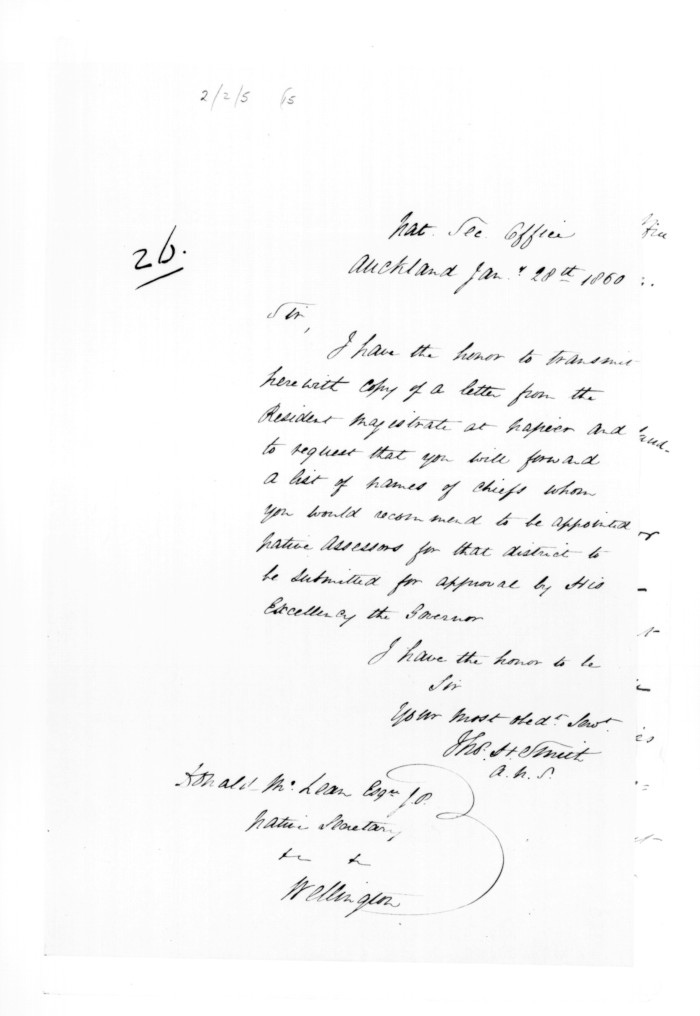 2/2/5
26.
Nat. Sec. Office
Auckland Jany. 28th 1860
Sir,
I have the honor to transmit
herewith copy of a letter from the
Resident Magistrate at Napier and
to request that you will forward
a list of names of chiefs whom
you would recommend to be appointed
native assessors for that district to
be submitted for approval by His
Excellency the Governor
I have the honor to be
Sir
Your most obedt. Servt.
Thos. H. Smith
A.N.S.
Donald McLean Esqre J.P.
Native Secretary
&c &c
Wellington